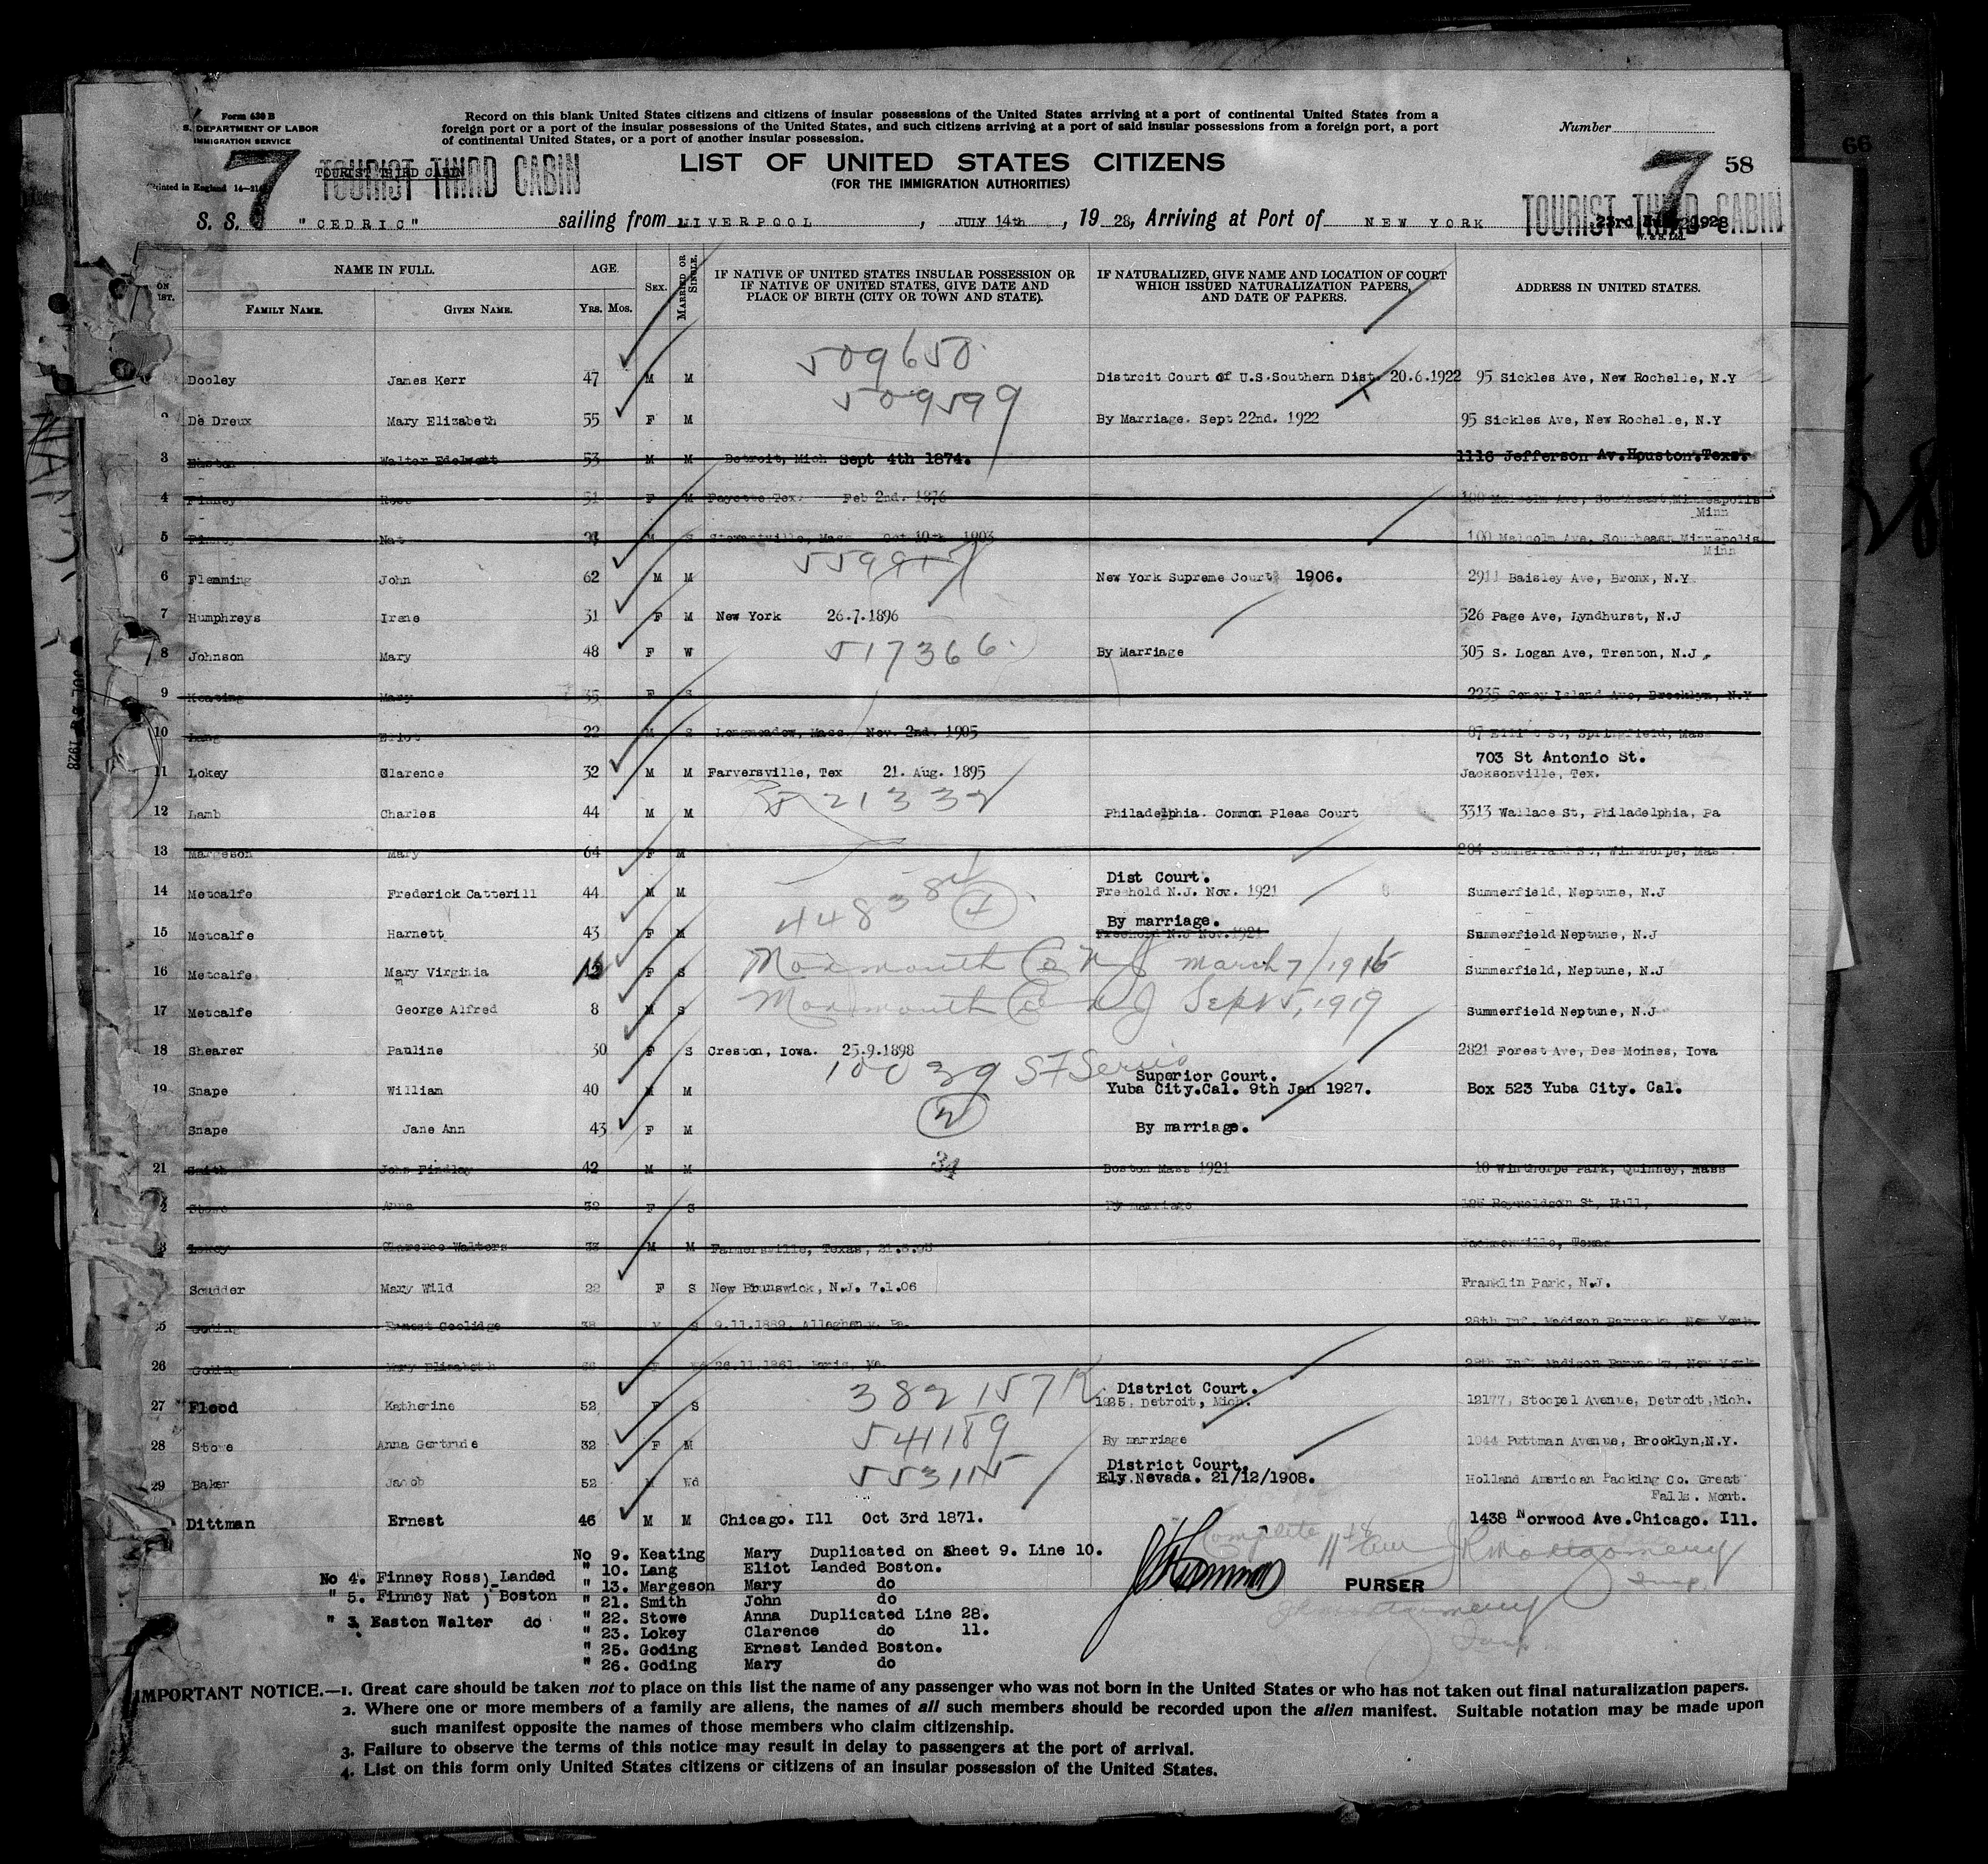 Form 630 B
S. DEPARTMENT OF LABOR
IMMIGRATION SERVICE
Printed in England 14—21
Record on this blank United States citizens and citizens of insular possessions of the United States arriving at a port of continental United States from a
foreign port or a port of the insular possessions of the United States, and such citizens arriving at a port of said insular possessions from a foreign port, a port
of continental United States, or a port of another insular possession.
Number
66
7
TOURIST THIRD CABIN
TOURIST THIRD CABIN
LIST OF UNITED STATES CITIZENS
(FOR THE IMMIGRATION AUTHORITIES)
7 58
TOURIST THIRD CABIN
S. S. "CEDRIC" sailing from LIVERPOOL, JULY 14th, 19 28, Arriving at Port of NEW YORK 23rd July 1928
W. & S. Ltd.
NAME IN FULL. AGE. SEX. MARRIED OR SINGLE. IF NATIVE OF UNITED STATES INSULAR POSSESSION OR IF NATIVE OF UNITED STATES, GIVE DATE AND PLACE OF BIRTH (CITY OR TOWN AND STATE). IF NATURALIZED, GIVE NAME AND LOCATION OF COURT WHICH ISSUED NATURALIZATION PAPERS, AND DATE OF PAPERS. ADDRESS IN UNITED STATES.
FAMILY NAME. GIVEN NAME. YRS. MOS.
509650
Dooley James Kerr 47 M M Distroit Court of U.S.Southern Dist. 20.6.1922 95 Sickles Ave, New Rochelle, N.Y
509599
De Dreux Mary Elizabeth 55 F M By Marriage. Sept 22nd. 1922 95 Sickles Ave, New Rochelle, N.Y
3 Easton Walter Edelwatt 53 M M Detroit, Mich Sept 4th 1874. 1116 Jefferson Av.Houston.Texs.
4 Finney Ross 51 F M Fayette, Tex. Feb 2nd. 1876 100 Malcolm Ave, Southeast, Minneapolis
Minn
5 Finney Nat M S Stewartville, Mass Oct 10th 1903 100 Malcolm Ave, Southeast Minnepolis
Minn
6 Flemming John 62 M M New York Supreme Court 1906. 2911 Baisley Ave, Bronx, N.Y
7 Humphreys Irene 31 F M New York 26.7.1896 526 Page Ave, Lyndhurst, N.J
8 Johnson Mary 48 F W 517366 By Marriage 305 S. Logan Ave, Trenton, N.J
9 Keating Mary 35 F S 2235 Coney Island Ave, Brooklyn, N.Y
10 Lang Eliot 22 M S Longmeadow, Mass Nov. 2nd. 1905 87 Elliot St, Springfield, Mas
703 St Antonio St.
11 Lokey Clarence 32 M M Farversville, Tex 21. Aug. 1895 Jacksonville, Tex.
21332
12 Lamb Charles 44 M M Philadelphia. Common Pleas Court 3313 Wallace St, Philadelphia, Pa
13 Margeson Mary 64 F M 204 Summerland St, Winthorpe, Mas
Dist Court.
14 Metcalfe Frederick Catterill 44 M M Freehold N.J. Nov. 1921 Summerfield, Neptune, N.J
44838
By marriage.
15 Metcalfe Harnett 43 F M Freehold N.J Nov.1921 Summerfield Neptune, N.J
16 Metcalfe Mary Virginia 12 F S Monmouth Co N J March 7/1916 Summerfield, Neptune, N.J
17 Metcalfe George Alfred 8 M S Monmouth Co N J Sept 5, 1919 Summerfield Neptune, N.J
18 Shearer Pauline 30 F S Creston, Iowa. 25.9.1898 2821 Forest Ave, Des Moines, Iowa
10039 SF Series
Superior Court.
19 Snape William 40 M M Yuba City.Cal. 9th Jan 1927. Box 523 Yuba City. Cal.
Snape Jane Ann 43 F M By marriage.
21 Smith John Findlay 42 M M 34 Boston Mass 1921 10 Winthorpe Park, Quinney, mass
Stowe Anna 32 F S By marriage 125 Reynoldson St, Hull,
Lokey Clarence Walters 33 M M Farmersville, Texas, 21.8.95 Jacksonville, Texas
Scudder Mary Wild 22 F S New Brunswick, N.J. 7.1.06 Franklin Park, N.J.
Goding Ernest Coolidge 38 M S 9.11.1889. Allegheny. Pa. 28th Inf. Madison Barracks, New York.
26 Goding Mary Elizabeth 66 F Wd 26.11.1861. Paris, Me. 28th Inf. Madison Barracks, New York
382157 District Court.
27 Flood Katherine 52 F S 1925, Detroit, Mich. 12177, Stoepel Avenue, Detroit,Mich.
541189
28 Stowe Anna Gertrude 32 F M By marriage 1044 Puttman Avenue, Brooklyn,N.Y.
District Court.
29 Baker Jacob 52 M Wd 553115 Ely.Nevada. 21/12/1908. Holland American Packing Co. Great
Falls. Mont.
Dittman Ernest 46 M M Chicago. Ill Oct 3rd 1871. 1438 Norwood Ave.Chicago. Ill.
No 9. Keating Mary Duplicated on Sheet 9. Line 10.
" 10. Lang Eliot Landed Boston.
No 4. Finney Ross) Landed
" 13. Margeson Mary do
" 5. Finney Nat ) Boston
" 21. Smith John do
" 22. Stowe Anna Duplicated Line 28.
" 3. Easton Walter do
" 23. Lokey Clarence do 11.
" 25. Goding Ernest Landed Boston.
" 26. Goding Mary do
Complete
PURSER
JRMontgomery
Insp.
IMPORTANT NOTICE.—1. Great care should be taken not to place on this list the name of any passenger who was not born in the United States or who has not taken out final naturalization papers.
2. Where one or more members of a family are aliens, the names of all such members should be recorded upon the alien manifest. Suitable notation may be made upon
such manifest opposite the names of those members who claim citizenship.
3. Failure to observe the terms of this notice may result in delay to passengers at the port of arrival.
4. List on this form only United States citizens or citizens of an insular possession of the United States.